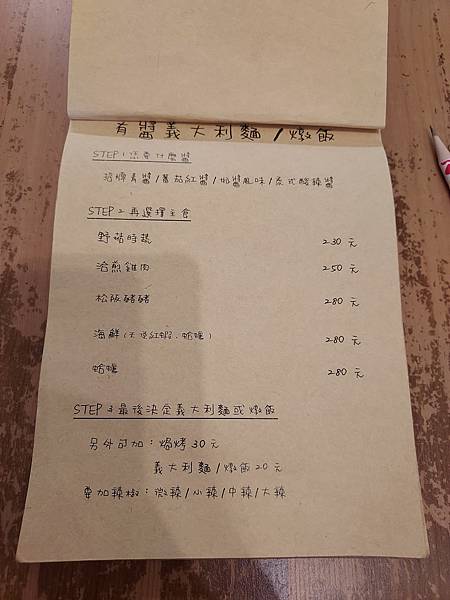 有醬義大利麵/燉飯
STEP 1 您要什麼醬
招牌青醬/蕃茄紅醬/奶醬風味/泰式酸辣醬
STEP 2 再選擇主食
野菇時蔬 230 元
嫩煎雞肉 250 元
松阪豬豬 280 元
海鮮(天使紅蝦、蛤蠣) 280 元
蛤蠣 280 元
STEP 3 最後決定義大利麵或燉飯
另外可加:焗烤 30元
義大利麵/燉飯 20 元
要加辣椒:微辣/小辣/中辣/大辣